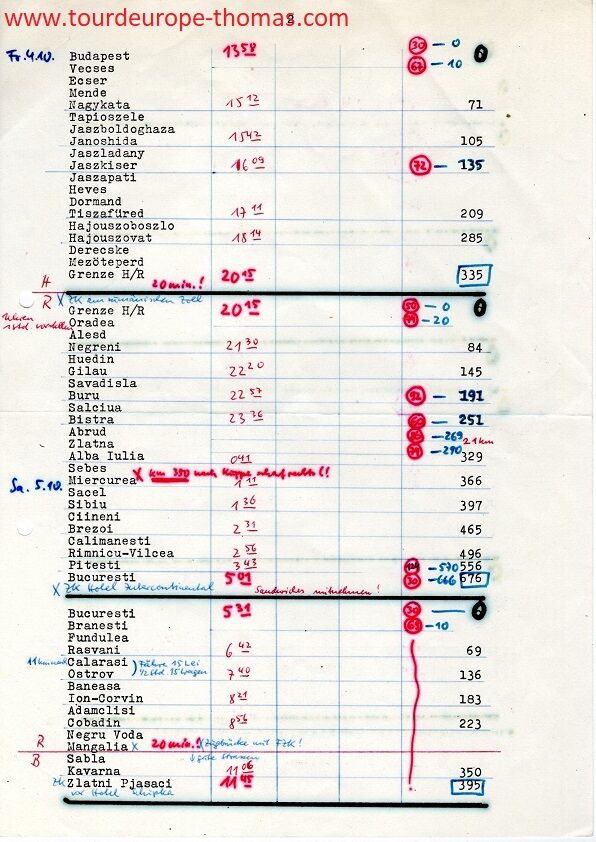 www.tourdeurope-thomas.com
Fr. 4.10. Budapest 13 58 30 - 0 0
Vecses - 10
Ecser
Mende
Nagykata 15 12 71
Tapioszele
Jaszboldoghaza
Janoshida 15 42 105
Jaszladany
Jaszkiser 16 09 72 - 135
Jaszapati
Heves
Dormand
Tiszafüred 17 11 209
Hajouszoboszlo
Hajouszovat 18 14 285
Derecske
Mezöteperd
Grenze H/R 20 15 335
H 20 min.!
R X ZK am rumänischen Zoll
Grenze H/R 20 15 - 0 0
Oradea - 20
1 Std. vorstellen
Alesd
Negreni 21 30 84
Huedin
Gilau 22 20 145
Savadisla
Buru 22 57 92 - 191
Salciua
Bistra 23 36 - 251
Abrud - 269 21 km
Zlatna - 290
Alba Iulia 0 41 329
Sebes X km 350 nach Kuppe scharf rechts!!
Sa. 5.10. Miercurea 1 11 366
Sacel
Sibiu 1 36 397
Ciineni
Brezoi 2 31 465
Calimanesti
Rimnicu-Vilcea 2 56 496
Pitesti 3 43 - 570 556
Bucuresti 5 01 30 - 666 676
X ZK Hotel Intercontinental Sandwiches mitnehmen!
Bucuresti 5 31 30 0
Branesti 69 - 10
Fundulea
Rasvani 6 42 69
Calarasi Fähre 15 Lei
Ostrov ½ Std. 35 Wagen 7 40 136
Baneasa
Ion-Corvin 8 21 183
Adamclisi
Cobadin 8 56 223
Negru Voda
R Mangalia X 20 min.! X Zugbrücke mit FZK!
B Sabla ↓ gute Strassen
Kavarna 11 06 350
ZK Zlatni Pjasaci 11 45 395
vor Hotel Schipka